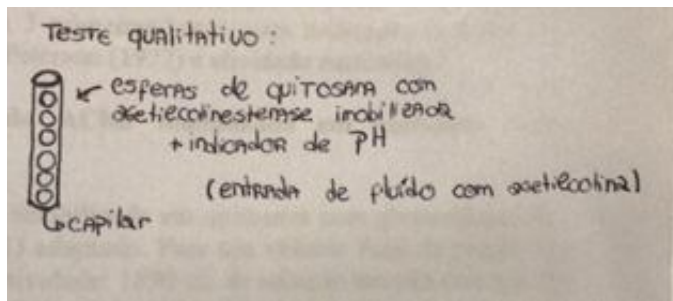 Teste qualitativo:
esferas de quitosana com
acetilcolinesterase imobilizada
+ indicador de pH
(entrada de fluido com acetilcolina)
capilar